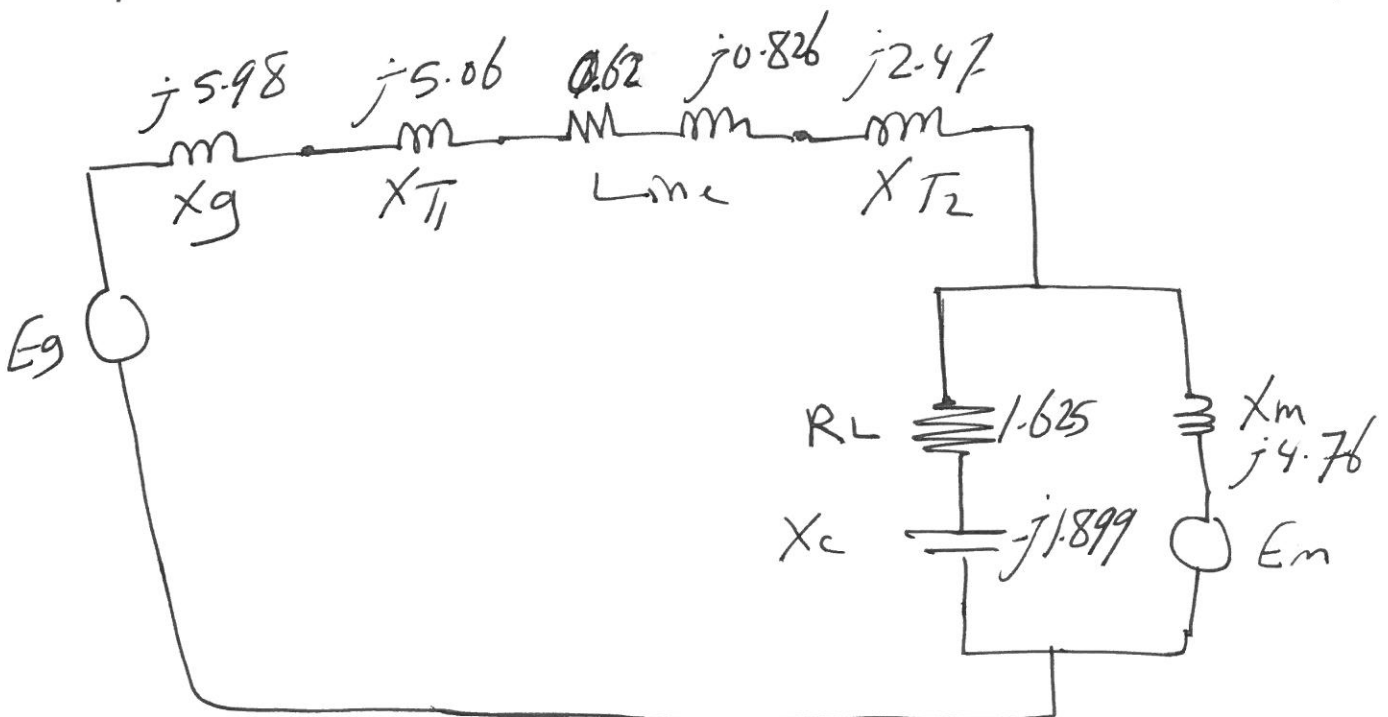 j5.98 j5.06 0.62 j0.826 j2.47
Xg XT1 Line XT2
Eg
RL 1.625
Xm
j4.76
Xc -j1.899
Em